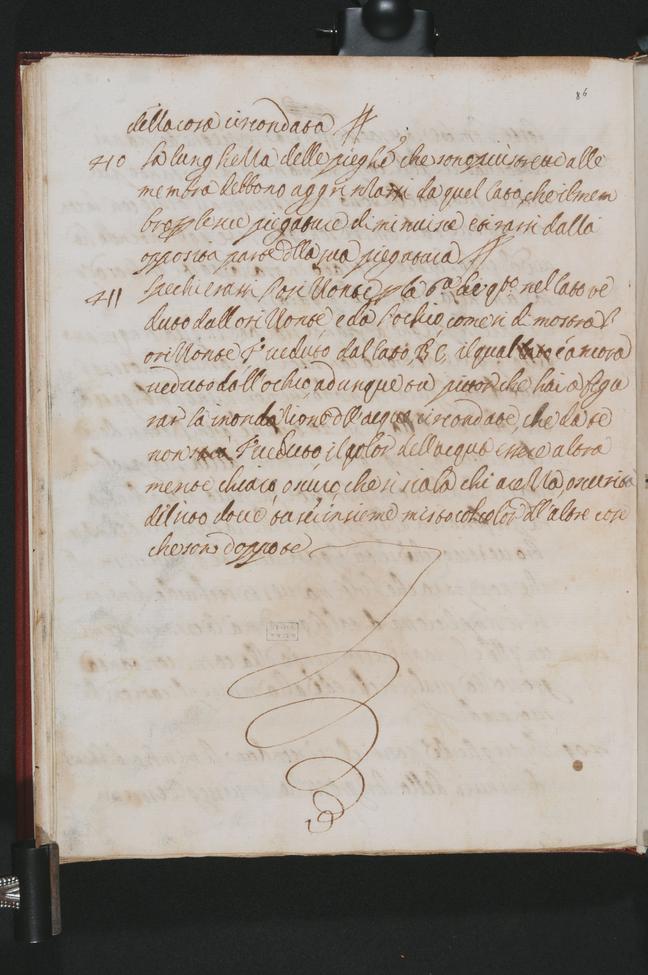 86
della cosa circondata //
410 La lunghezza delle pieghe che sono più strette alle
membra debbono aggrinzarsi da quel lato, che il mem
bro p le sue piegature diminuisce e tirarsi dalla
opposita parte della sua piegatura //
411 Specchierassi l'orizzonte p la 6a de nel lato ve
duto dall'orizzonte e da l'ochio, come si dimostra l'
orizzonte F veduto dal lato, B C, il qual è ancora
veduto dall'ochio, adunque tu pittor che hai a figu
rar la inondazione dll'acque circondate, che da te
non F veduto il color dell'acqua essere altra
mente chiaro o scuro che si sia la chiarezza, o oscurità
del sito dove tu sei insieme misto col color dll'altre cose
che sono doppo te